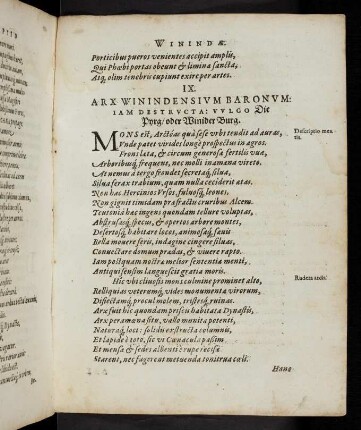 WININDÆ
Porticibus pueros venientes accipit amplis,
Qui Phœbi portas obeunt & limina sancta,
Atq; olim tenebris cupiunt exire per artes.
IX.
ARX WININDENSIVM BARONVM:
IAM DESTRVCTA: VVLGO Die
Pyrg/ oder Winider Burg.
MONS est, Arctôas quà sese urbs tendit ad auras,
Vnde patet virides longè prospectus in agros.
Descriptio mon-
tis.
Frons lata, & circum generosa fertilis uua,
Arboribusq; frequens, nec molli inamœna vireto.
At nemus à tergo frondet secretaq; silua,
Silua ferax trabium, quam nulla ceciderat ætas.
Non hac Hercinios Vrsos, fuluosq; leones,
Non gignit timidam præfractis cruribus Alcem.
Teutonia hac ingens quondam tellure voluptas,
Abstrusasq; specus, & opertos arbore montes,
Desertosq; habitare locos, animosaq; sæuis
Bella mouere feris, indagine cingere siluas,
Conuectare domum prædas, & viuere rapto.
Iam postquam nostra melior sententia menti,
Antiqui sensim languescit gratia moris.
Hic vbi cliuosis mons culmine prominet alto,
Relliquias veterumq; vides monumenta virorum,
Rudera arcis.
Disiectamq; procul molem, tristesq; ruinas.
Arx fuit hic quondam priscis habitata Dynastis,
Arx peramœna situ, vallo munita potenti,
Naturaq; loci: solidis exstructa columnis,
Et lapide è toto, sic vt Cænacula passim
Et mensæ & sedes albenti è rupe recisæ
Starent, nec fageo aut metuenda construa cœli.
Hanc